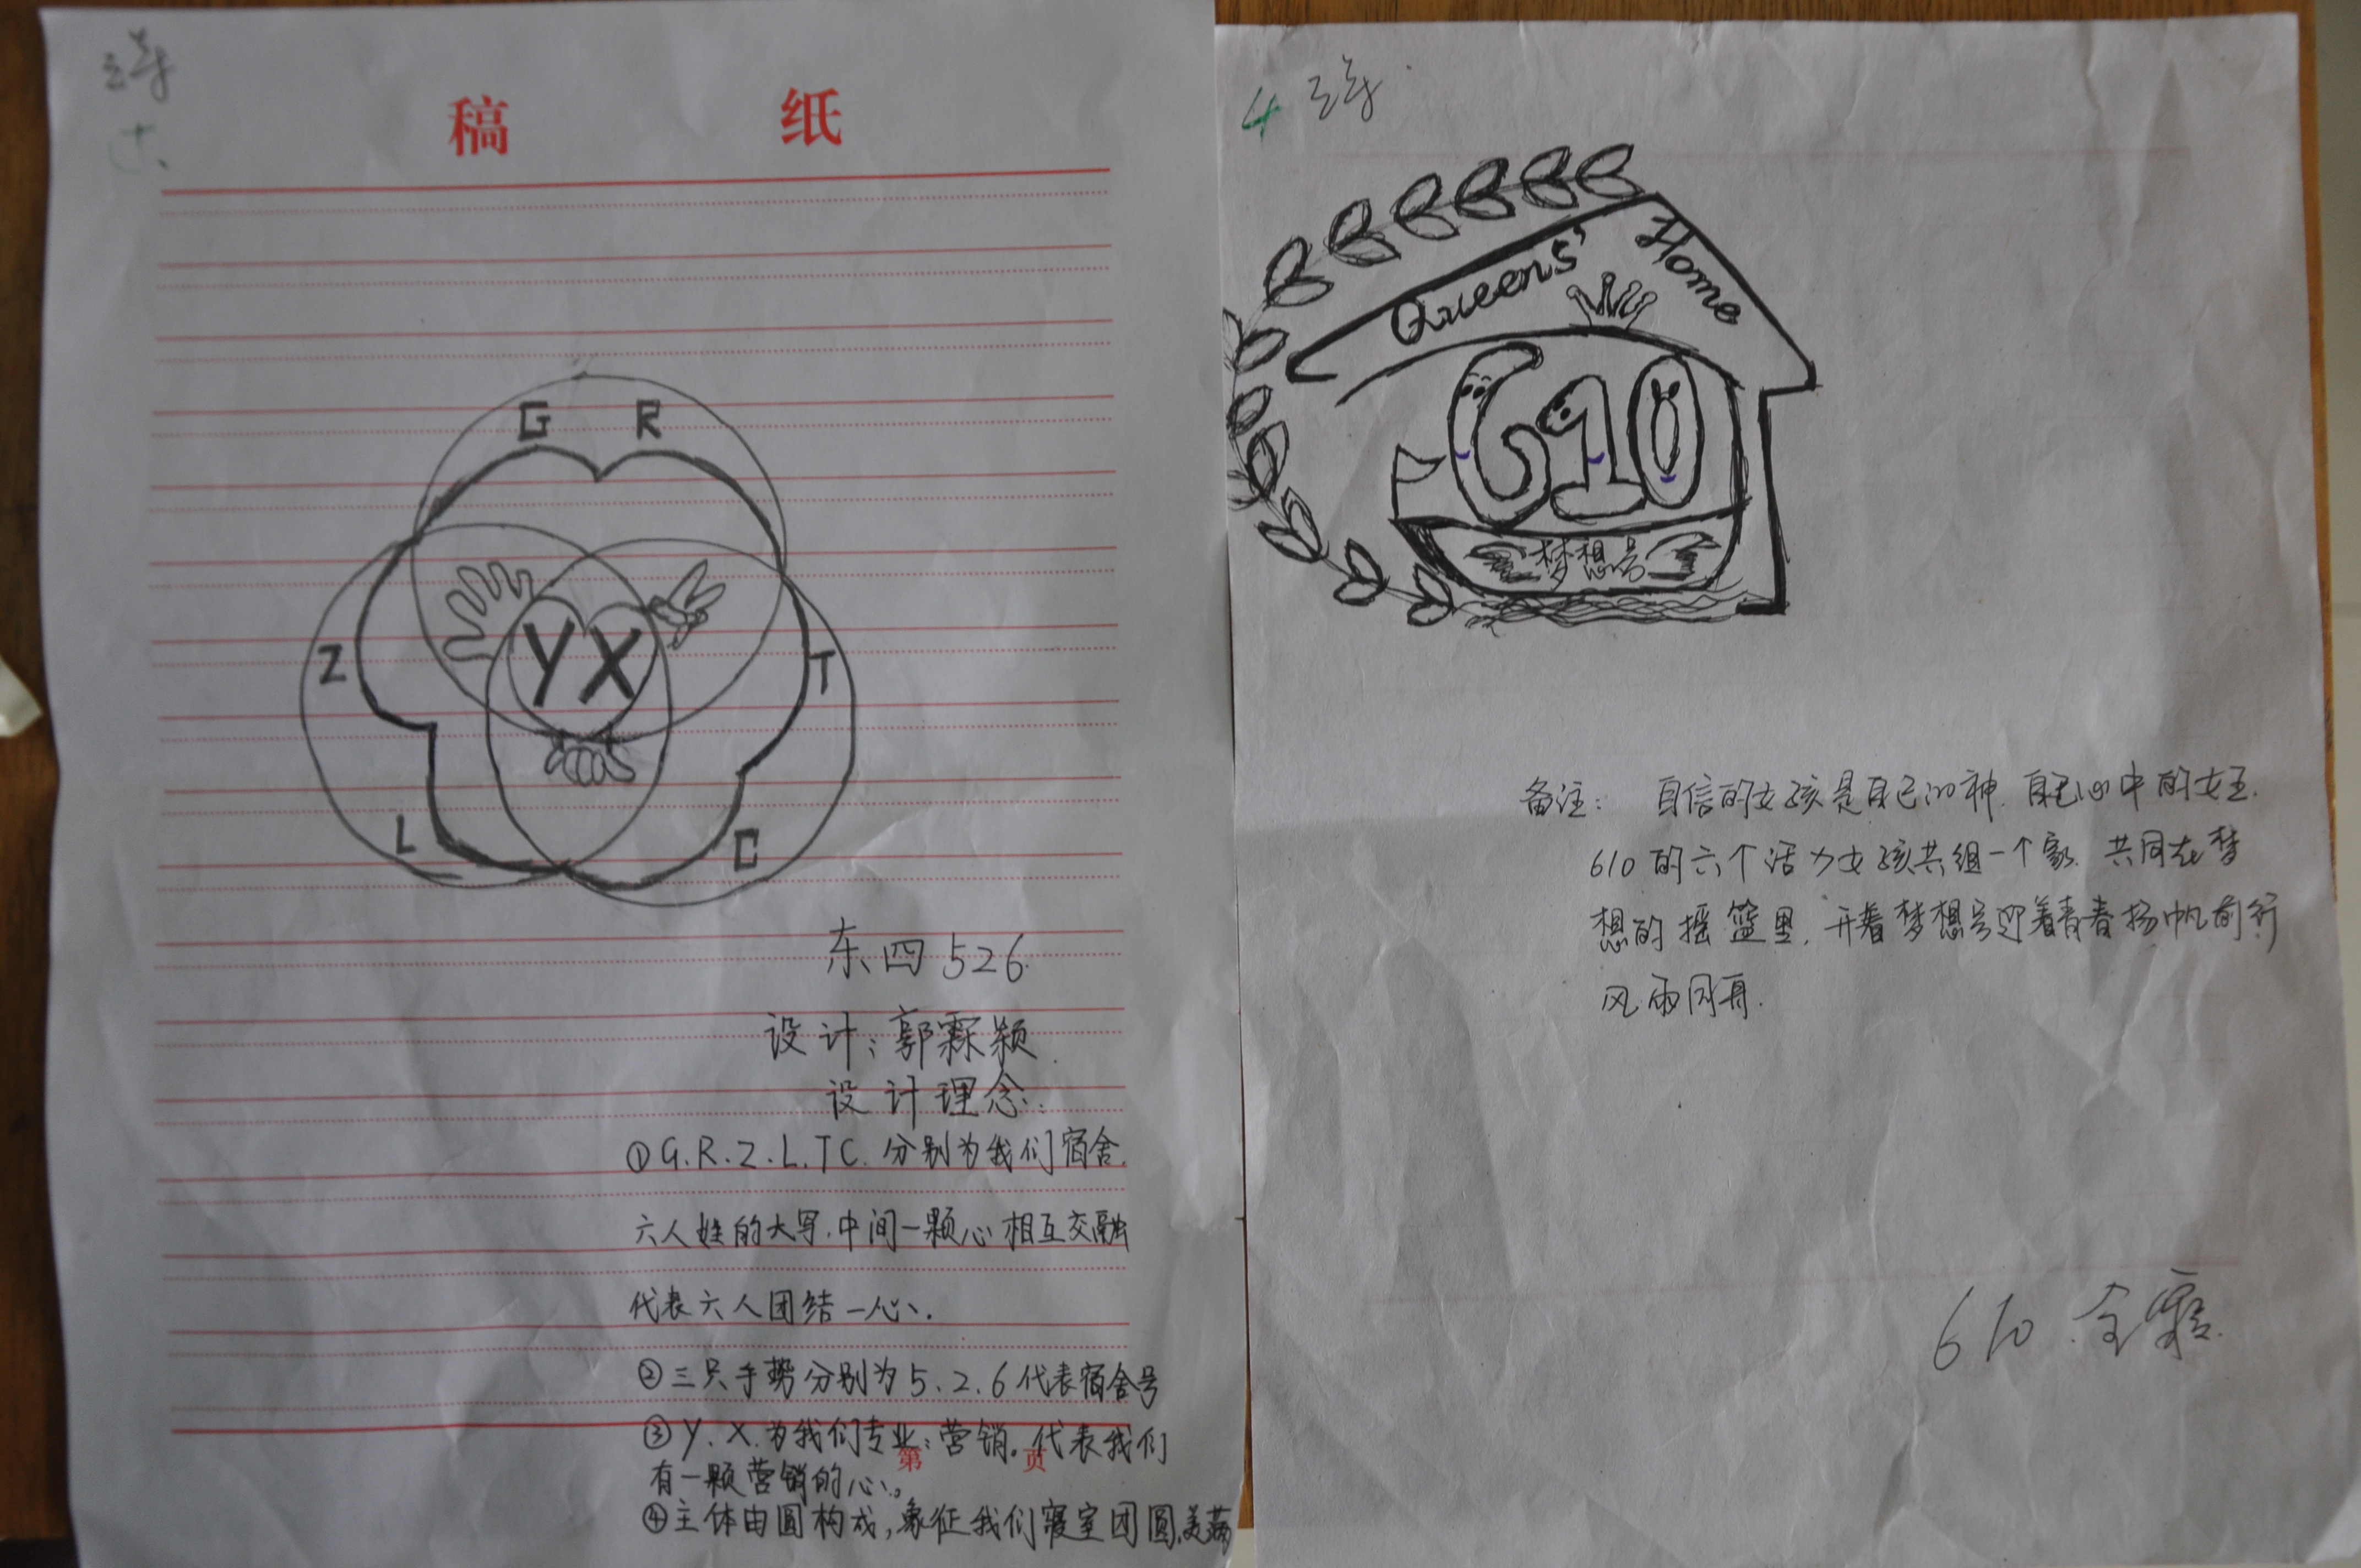 稿 纸
G R
Z YX T
L C
东四526
设计：郭霖颖
设计理念：
①G.R.Z.L.TC.分别为我们宿舍.
六人姓的大写.中间一颗心相互交融
代表六人团结一心.
②三只手势分别为5.2.6代表宿舍号
③Y.X.为我们专业：营销。代表我们
有一颗营销的心。
④主体由圆构成，象征我们寝室团圆.美满
第 页
4
Queens' Home
610
梦想号
备注： 自信的女孩是自己的神.自己心中的女王.
610的六个活力女孩共组一个家.共同在梦
想的摇篮里.开着梦想号迎着青春扬帆前行
风雨同舟.
610 全寝.